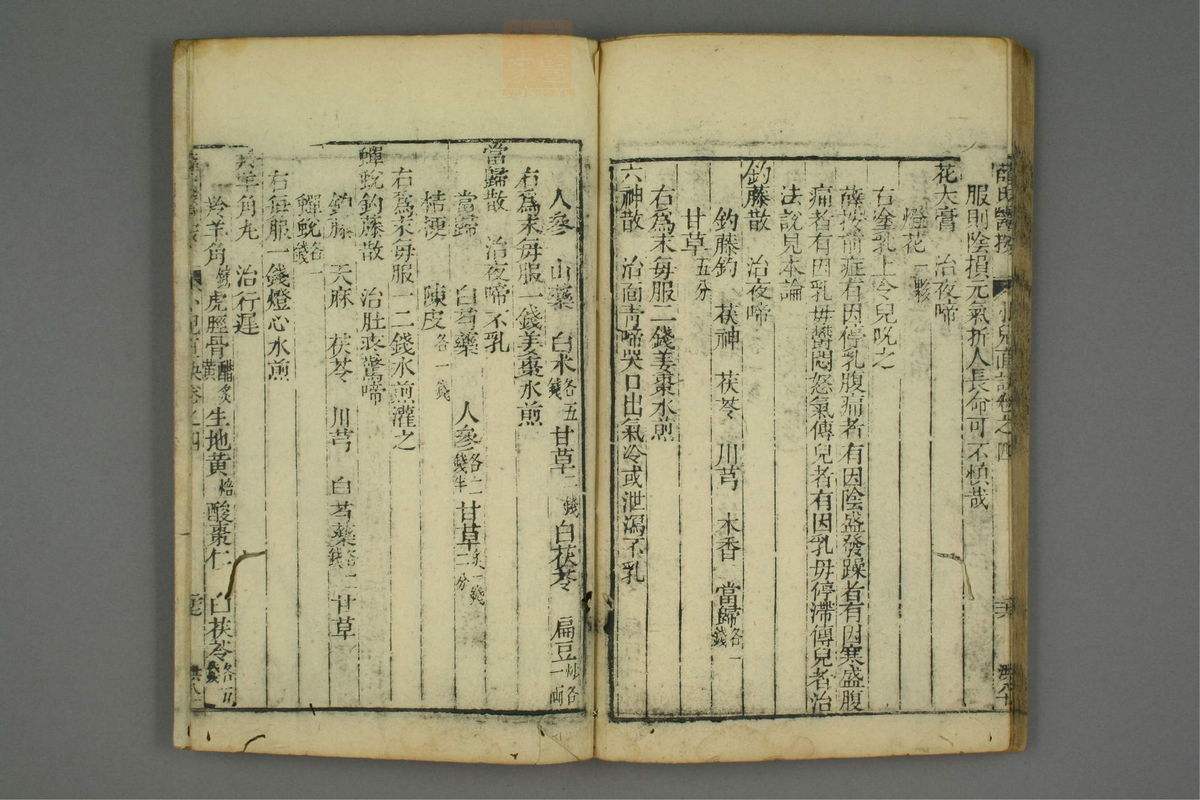 薛氏醫按 小兒直訣卷之四
服則陰損元氣折人長命可不慎哉
花火膏 治夜啼
燈花一顆
右塗乳上令兒吮之
薛按前症有因停乳腹痛者有因陰盛發躁者有因寒盛腹
痛者有因乳母鬱悶怒氣傳兒者有因乳母停滯傳兒者治
法說見本論
釣藤散 治夜啼
釣藤鈎 茯神 茯苓 川芎 木香 當歸各一錢
甘草五分
右為末每服二錢姜棗水煎
六神散 治面青啼哭口出氣冷或泄瀉不乳
人參 山藥 白朮各五錢 甘草二錢 白茯苓 扁豆炒各一兩
右為末每服一錢姜棗水煎
當歸散 治夜啼不乳
當歸 白芍藥 人參各二錢半 甘草炙一錢二分
桔梗 陳皮各一錢
右為末每服一二錢水煎灌之
蟬蛻釣藤散 治肚疼驚啼
釣藤 天麻 茯苓 川芎 白芍藥各二錢 甘草
蟬蛻各一錢
右每服一錢燈心水煎
羚羊角丸 治行遲
羚羊角鎊 虎脛骨醋炙黃 生地黃焙 酸棗仁 白茯苓各五錢
小兒直訣卷之四